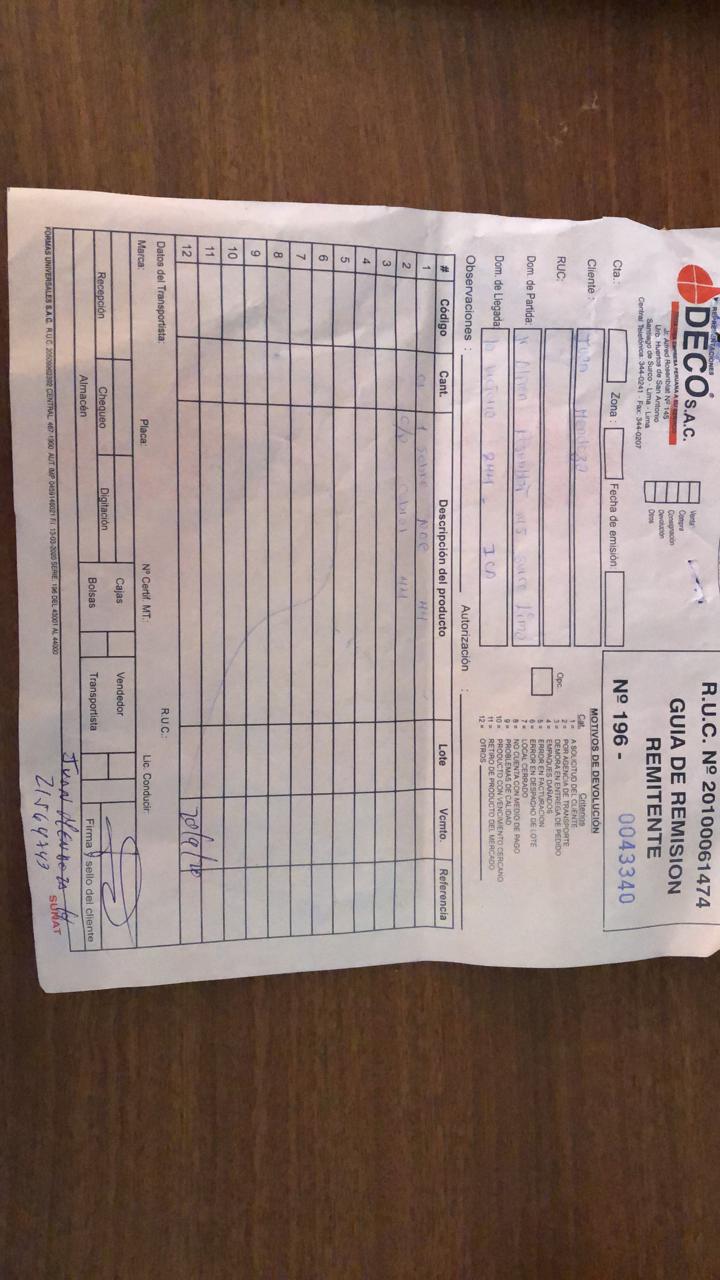 REPRESENTACIONES
DECO S.A.C.
UNA EMPRESA PERUANA A SU SERVICIO
Jr. Alfred Rosenblat Nº 145
Urb. Huertos de San Antonio
Santiago de Surco - Lima - Lima
Central Telefónica: 344-0241 Fax: 344-0207
Venta
Compra
Consignación
Devolución
Otros
R.U.C. Nº 20100061474
GUIA DE REMISION
REMITENTE
Nº 196 - 0043340
Cta.: Zona : Fecha de emisión
Cliente : Juan Mendoza
RUC:
Dom. de Partida: Jr Alfred Rosenblat 145 Surco Lima
Dom. de Llegada: ICA
Opc.
MOTIVOS DE DEVOLUCIÓN
Cat. Criterios
1 = A SOLICITUD DEL CLIENTE
2 = POR AGENCIA DE TRANSPORTE
3 = DEMORA EN ENTREGA DE PEDIDO
4 = EMPAQUES DAÑADOS
5 = ERROR EN FACTURACION
6 = ERROR EN DESPACHO DE LOTE
7 = LOCAL CERRADO
8 = NO CUENTA CON MEDIO DE PAGO
9 = PROBLEMAS DE CALIDAD
10 = PRODUCTO CON VENCIMIENTO CERCANO
11 = RETIRO DE PRODUCTO DEL MERCADO
12 = OTROS
Observaciones : Autorización :
# Código Cant. Descripción del producto Lote Vcmto. Referencia
1 1 sobre
2 c/o
3
4
5
6
7
8
9
10
11
12
Datos del Transportista: R.U.C.:
Marca: Placa: Nº Certif. MT.: Lic. Conducir
Recepción Chequeo Digitación Cajas Vendedor
Almacén Bolsas Transportista Firma y sello del cliente
FORMAS UNIVERSALES S.A.C.
SUNAT
JUAN MENDOZA H
21564743